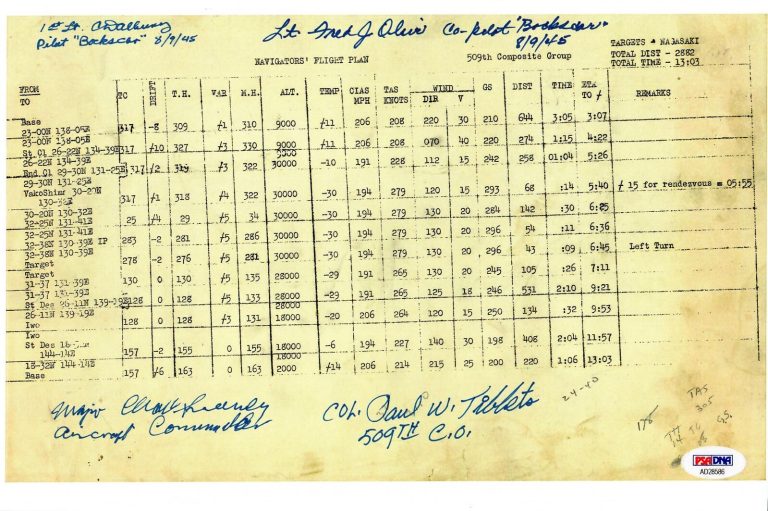 1st Lt. Lt. Fred J. Olivi Co-pilot "Bockscar"
Pilot "Bockscar" 8/9/45 8/9/45
NAVIGATORS' FLIGHT PLAN 509th Composite Group TARGETS - NAGASAKI
TOTAL DIST - 2882
TOTAL TIME - 13:03
FROM TO TC DRIFT T.H. VAR M.H. ALT. TEMP CIAS MPH TAS KNOTS WIND DIR V GS DIST TIME ETA TO REMARKS
Base
23-00N 138-05E 317 -8 309 /1 310 9000 /11 206 208 220 30 210 644 3:05 3:07
23-00N 138-05E
St Cl 26-22N 134-39E 317 /10 327 /3 330 9000 /11 206 208 070 40 220 274 1:15 4:22
26-22N 134-39E
End Cl 29-30N 131-25E 317 /2 319 /3 322 30000 -10 191 228 112 15 242 258 01:04 5:26
29-30N 131-25E
YakoShima 30-20N
317 /1 318 /4 322 30000 -30 194 279 120 15 293 68 :14 5:40 / 15 for rendezvous = 05:55
30-20N 130-32E
32-25N 131-41E 25 /4 29 /5 34 30000 -30 194 279 130 20 284 142 :30 6:25
32-25N 131-41E
32-38N 130-39E IP 283 -2 281 /5 286 30000 -30 194 279 130 20 296 54 :11 6:36
32-38N 130-39E
Target 278 -2 276 /5 281 30000 -30 194 279 130 20 296 43 :09 6:45 Left Turn
Target
31-37 131-39E 130 0 130 /5 135 28000 -29 191 265 130 20 245 105 :26 7:11
31-37 131-39E
St Des 26-11N 139-19E 128 0 128 /5 133 28000 -29 191 265 125 18 246 531 2:10 9:21
26-11N 139-19E
Iwo 128 0 128 /3 131 18000 -20 206 264 120 15 250 134 :32 9:53
Iwo
St Des
144-14E 157 -2 155 0 155 18000 -6 194 227 140 30 198 408 2:04 11:57
18-32N 144-14E
Base 157 /6 163 0 163 2000 /14 206 214 215 25 200 220 1:06 13:03
Major COL. Paul W. Tibbets
Aircraft Commander 509TH C.O.
24-40
TAS
305
G.S.
PSA/DNA
AD28586